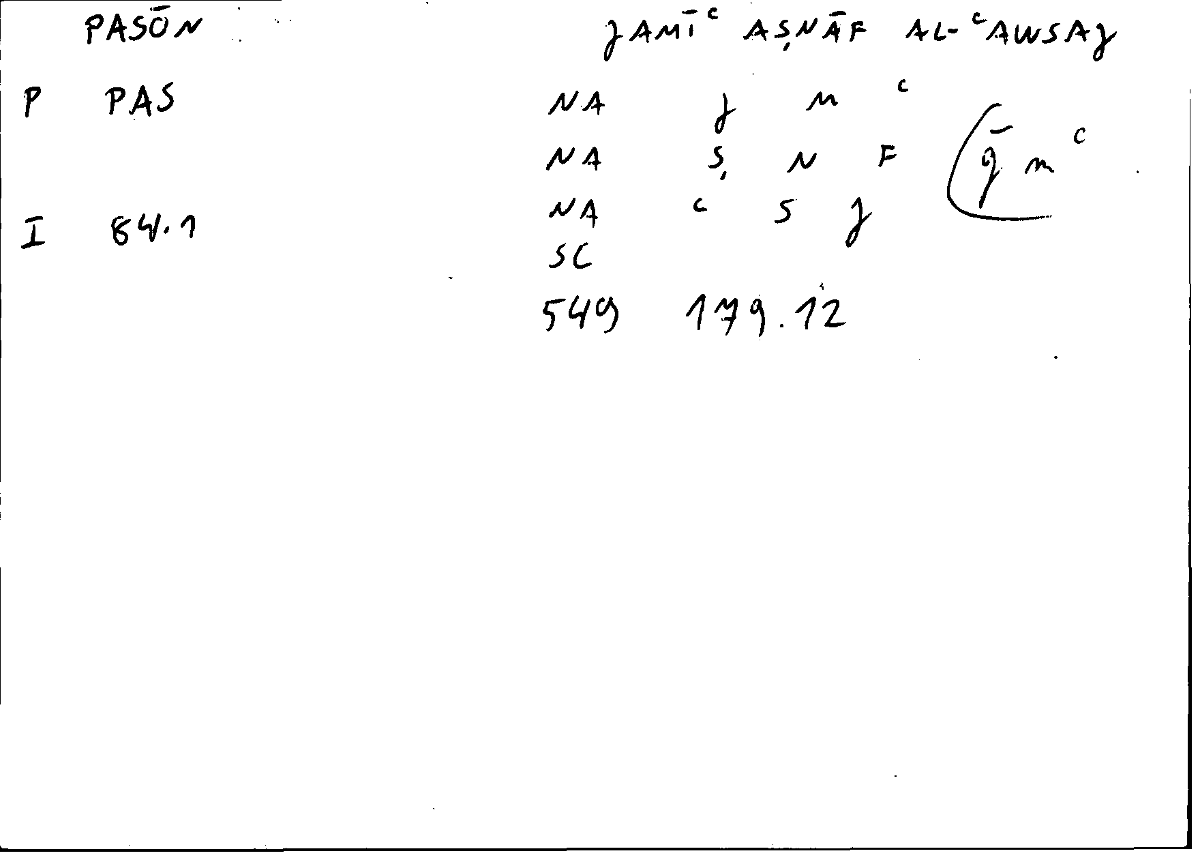 PASŌN ɈAMĪᶜ AṢNĀF AL-ᶜAWSAɈ
P PAS NA Ɉ M ᶜ
NA Ṣ N F (ḡ m ᶜ
I 84.1 NA ᶜ S Ɉ
SC
549 179.12